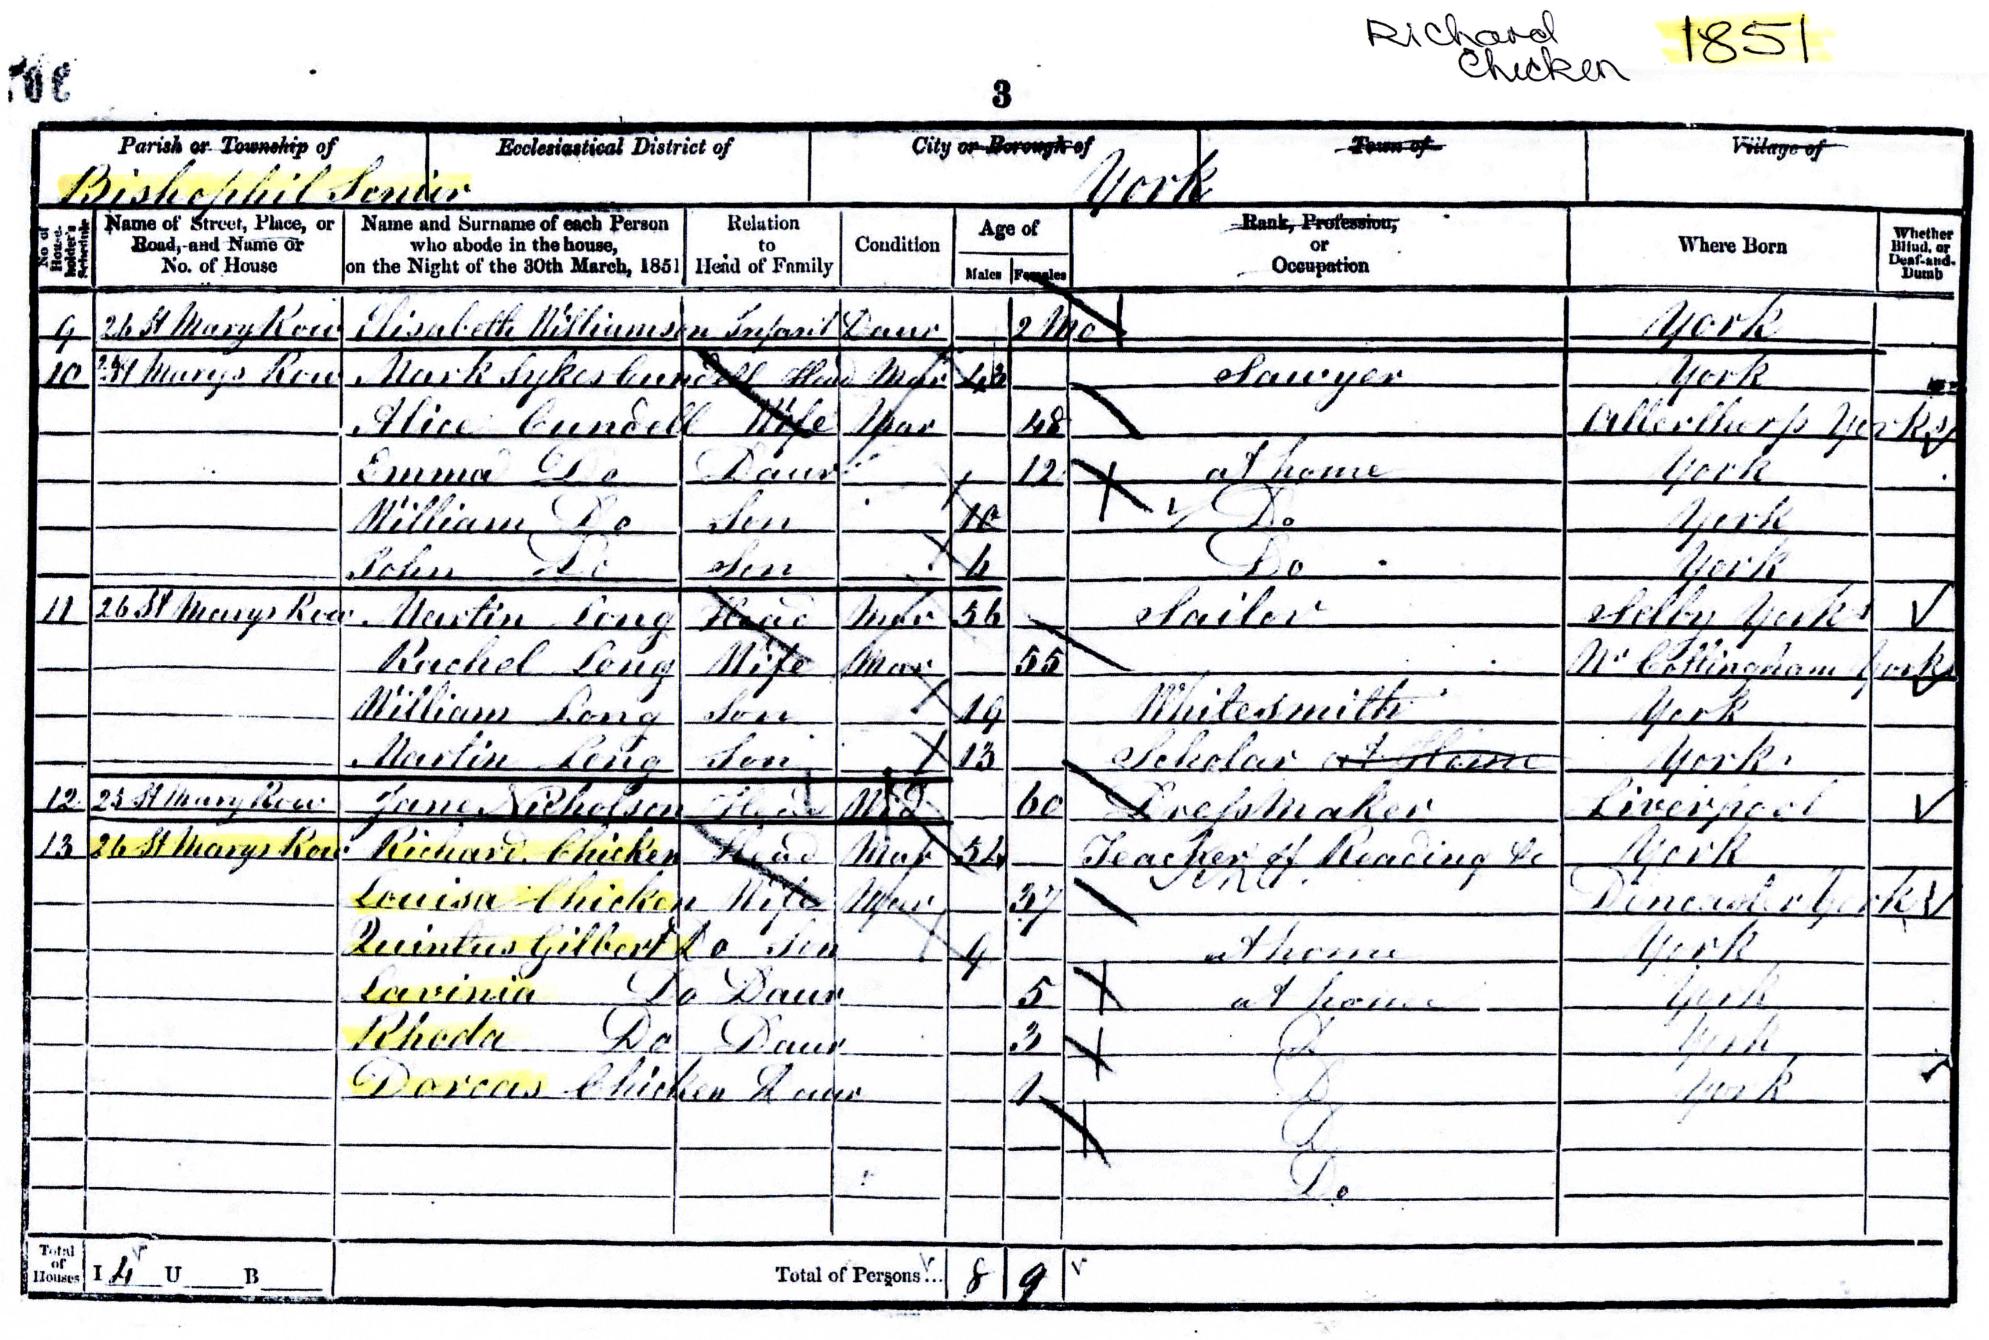 Richard 1851
Chicken
3
Parish or Township of Ecclesiastical District of City or Borough of Town of Village of
Bishophil Senior York
No. of House-holder's Schedule Name of Street, Place, or Road, and Name or No. of House Name and Surname of each Person who abode in the house, on the Night of the 30th March, 1851 Relation to Head of Family Condition Age of Males Females Rank, Profession, or Occupation Where Born Whether Blind, or Deaf-and-Dumb
9 26 St Mary Row Elisabeth Williamson Infant Daur 2 Mo York
10 St Marys Row Mark Sykes Cundell Head Mar 43 Sawyer York
Alice Cundell Wife Mar 48 Allerthorp Yorks
Emma Do Daur 12 at home York
William Do Son 10 Do York
John Do Son 6 Do York
11 26 St Marys Row Martin Long Head Mar 56 Sailor Selby Yorks
Rachel Long Wife Mar 55 Nr Cottingham Yorks
William Long Son 19 Whitesmith York
Martin Long Son 13 Scholar at Home York
12 25 St Mary Row Jane Nicholson Head Wid 60 Dressmaker Liverpool
13 26 St Marys Row Richard Chicken Head Mar 54 Teacher of Reading &c York
Louisa Chicken Wife Mar 37 Doncaster Yorks
Quintus Gilbert Do Son 9 at home York
Lavinia Do Daur 5 at home York
Rhoda Do Daur 3 D York
Dorcas Chicken Daur 1 D York
D
Do
Total of Houses I 4 U B Total of Persons... 8 9